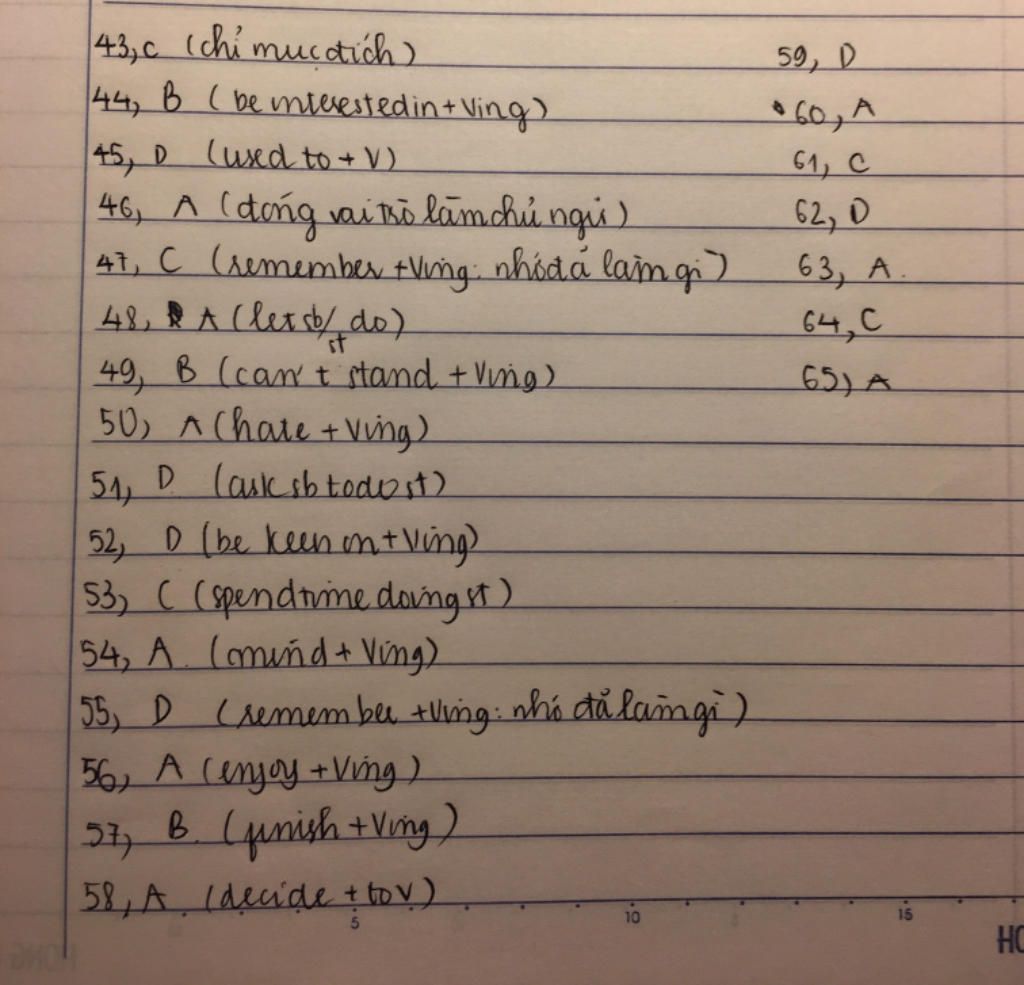 43, C (chỉ mục đích)
59, D
44, B (be interested in + Ving)
60, A
45, D (used to + V)
61, C
46, A (đóng vai trò làm chủ ngữ)
62, D
47, C (remember + Ving: nhớ đã làm gì)
63, A.
48, A (let sb/st do)
64, C
49, B (can't stand + Ving)
65, A
50, A (hate + Ving)
51, D (ask sb to do st)
52, D (be keen on + Ving)
53, C (spend time doing st)
54, A (mind + Ving)
55, D (remember + Ving: nhớ đã làm gì)
56, A (enjoy + Ving)
57, B. (finish + Ving)
58, A (decide + to V)
5 10 15
HO